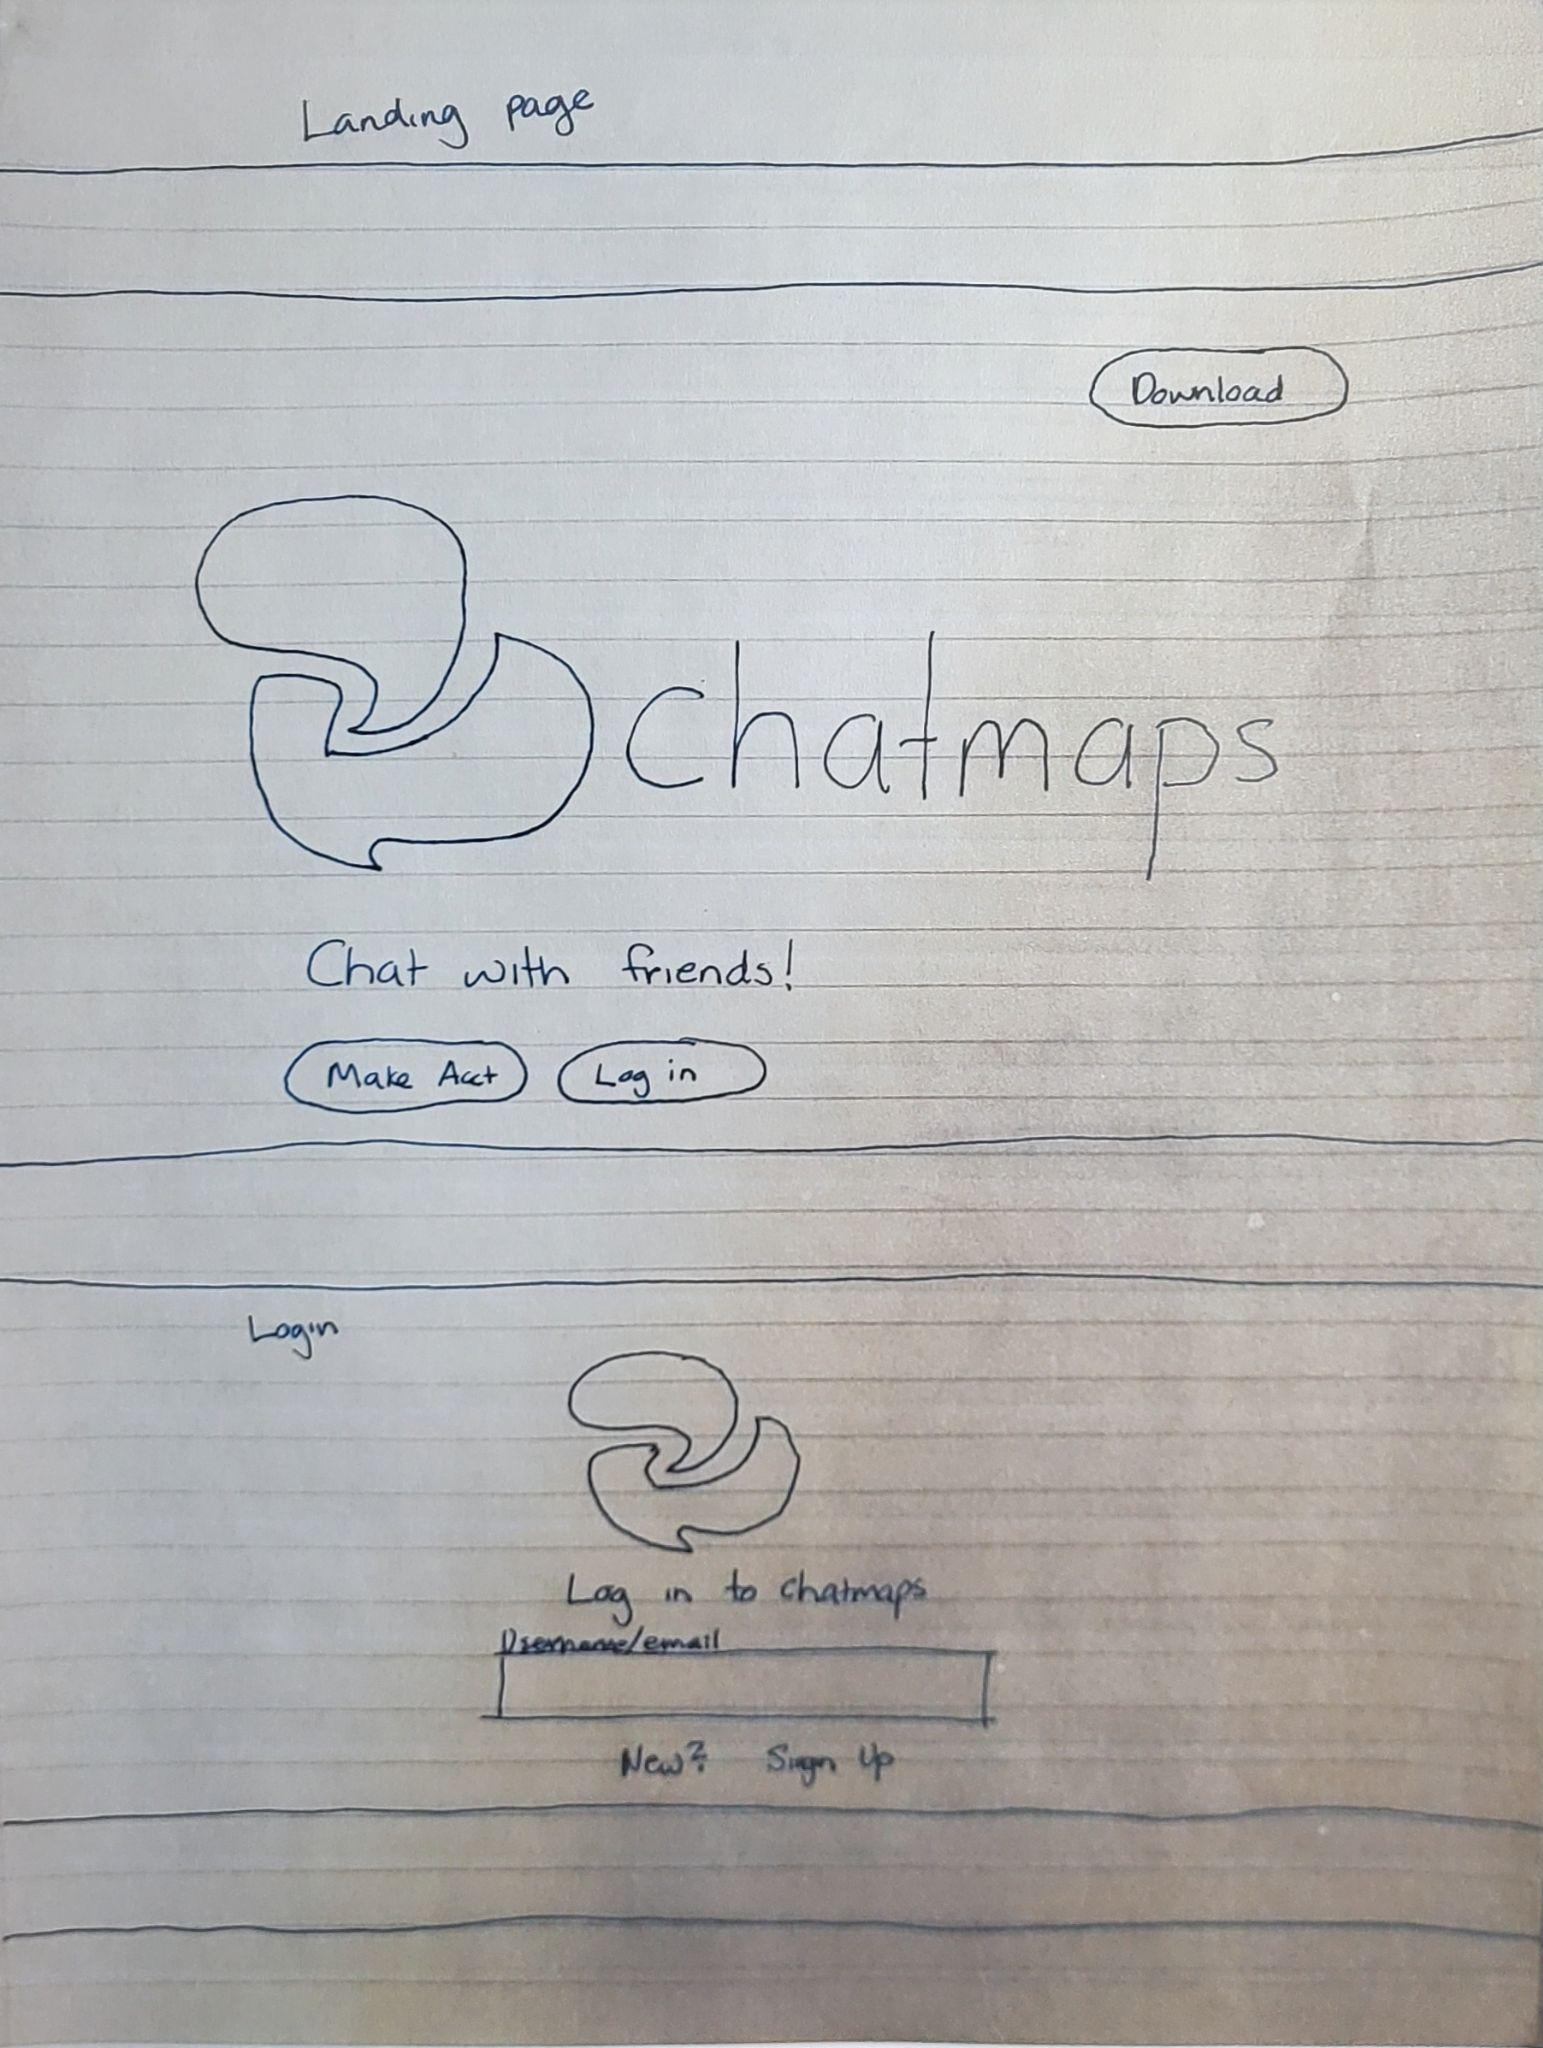 Landing page
Download
chatmaps
Chat with friends!
Make Acct Log in
Login
Log in to chatmaps
Username/email
New? Sign Up